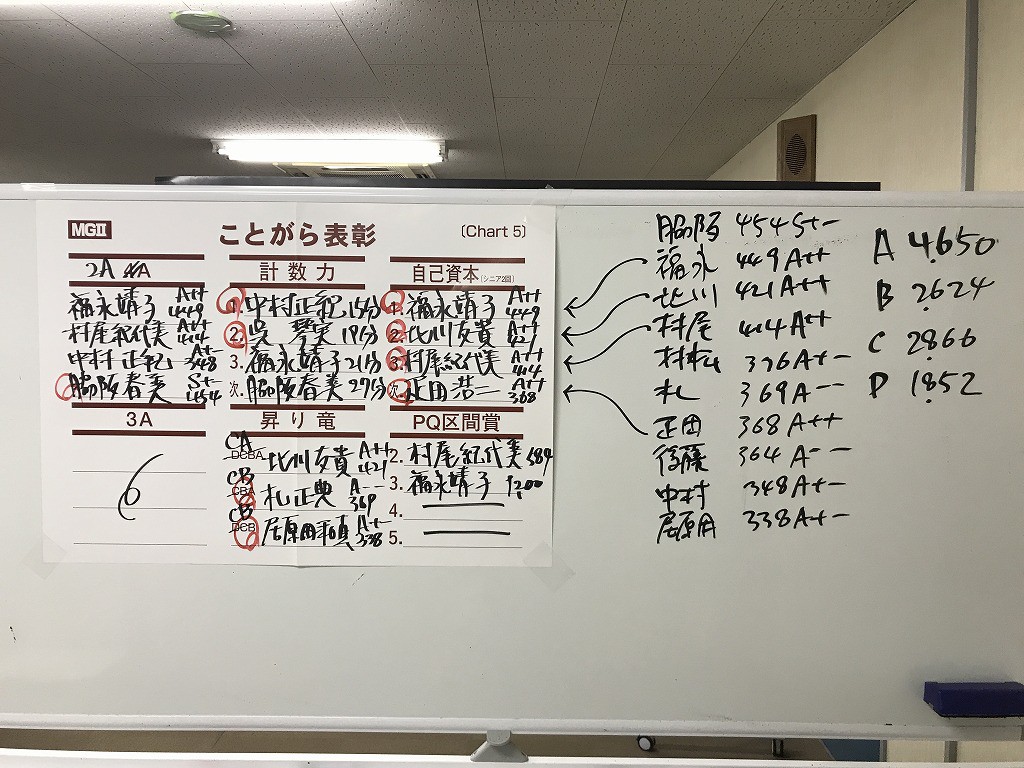 MGII
ことがら表彰
〔Chart 5〕
2A
福永靖子 A++ 449
村尾紀代美 A++ 414
中村正紀 A+- 348
脇阪春美 S+- 454
計数力
1. 中村正紀 15分
2. 呉 琴実 19分
3. 福永靖子 21分
次. 脇阪春美 27分
自己資本(シニア2回)
1. 福永靖子 A++ 449
2. 比川友貴 A++ 421
3. 村尾紀代美 A++ 414
次. 正田浩二 A++ 368
3A
6
昇り竜
CA DCBA 比川友貴 A++ 421
CB CBA 札正典 A-- 369
CB DCB 居原田 A+- 338
PQ区間賞
2. 村尾紀代美 589
3. 福永靖子 1200
4.
5.
脇阪 454 S+-
福永 449 A++
比川 421 A++
村尾 414 A++
村松 376 A+-
札 369 A--
正田 368 A++
後藤 364 A--
中村 348 A+-
居原田 338 A+-
A 4.650
B 2.624
C 2.866
D 1.852